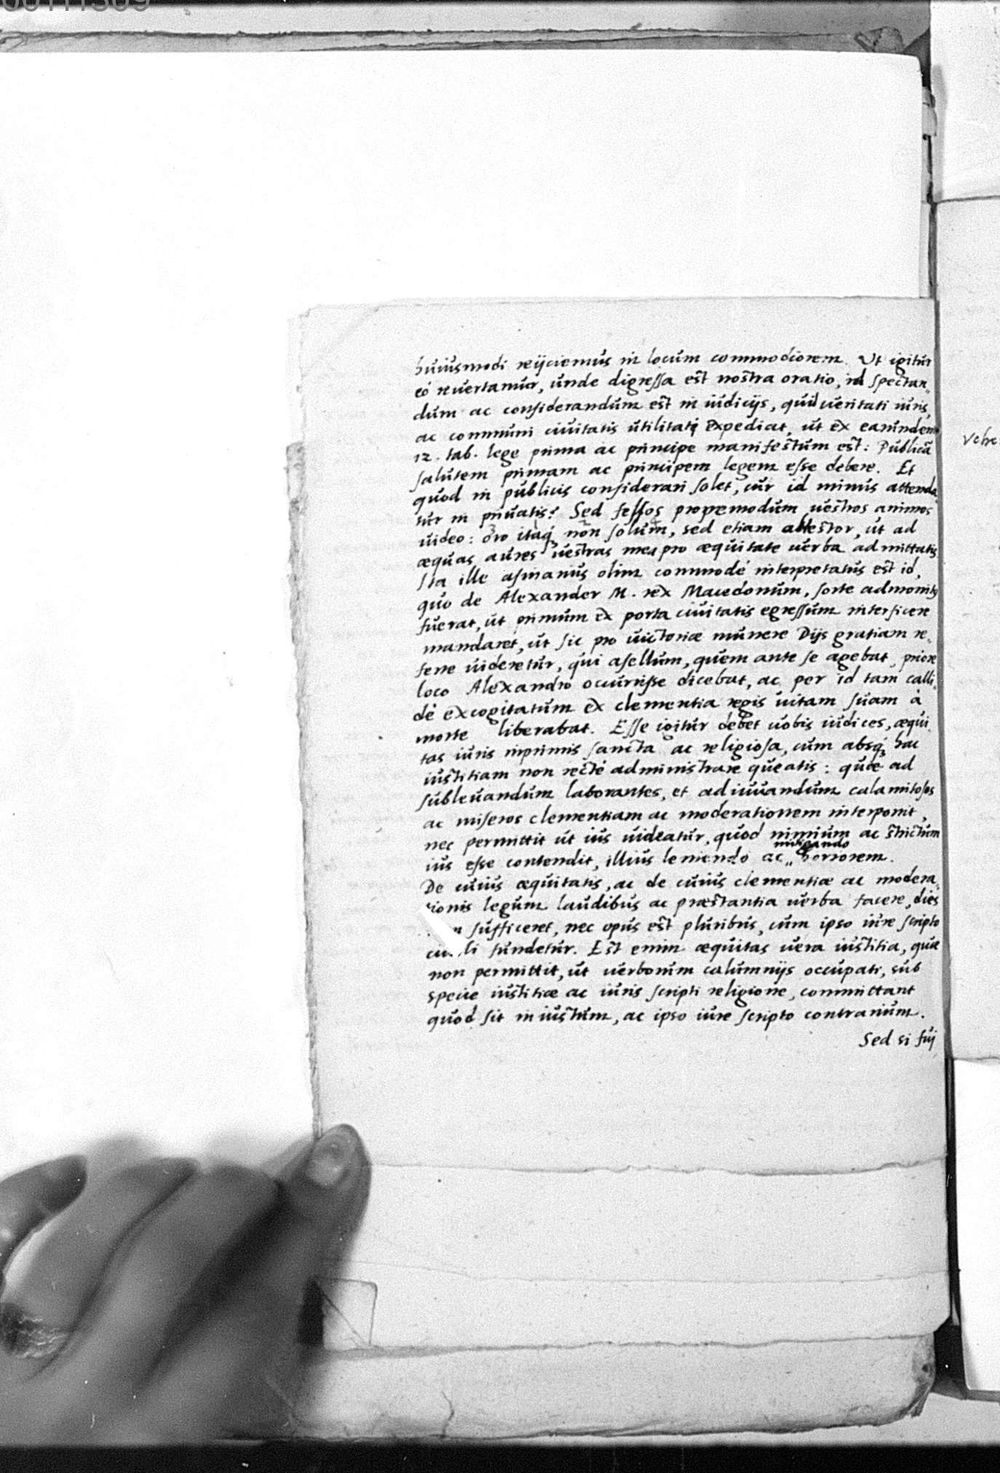 huiusmodi reijciemus in locum commodiorem. Ut igitur
eó revertamur, unde digressa est nostra oratio, id spectan,
dum ac considerandum est in iudicijs, quid veritati iuris,
ac communi civitatis utilitati expediat, ut ex eamdem
12. tab. lege prima ac principe manifestum est: Publicã
salutem primam ac principem legem esse debere. Et
quod in publicis considerari solet, cur id minus attenda
tur in privatis? Sed fessos propemodum vestros animos
video: oro itaq, non solum, sed etiam obtestor, ut ad
æquas aures vestras mea pro æquitate verba admittatis
Ita ille asinarius olim commodé interpretatus est id,
quo de Alexander M. rex Macedonum, sorte admonitus
fuerat, ut primum ex porta civitatis egressum interficere
mandaret, ut sic pro victoriæ munere Dijs gratiam re,
ferre videretur, qui asellum, quem ante se agebat, priore
loco Alexandro occurrisse dicebat, ac per id tam calli,
dé excogitatum ex clementia regis vitam suam à
morte liberabat. Esse igitur debet vobis iudices, æqui
tas iuris inprimis sancta ac religiosa, cum absq, hac
iustitiam non recté administrare queatis: quæ ad
sublevandum laborantes, et adiuvandum calamitosos
ac miseros clementiam ac moderationem interponit,
nec permittit ut ius videatur, quod nimium ac strictum
ius esse contendit, illius leniendo ac horrorem.
mitigando
De cuius æquitatis, ac de cuius clementiæ ac modera,
tionis legum laudibus ac præstantia verba facere, dies
sufficeret, nec opus est pluribus, cum ipso iure scripto
fundetur. Est enim æquitas vera iustitia, quæ
non permittit, ut verborum calumnijs occupati, sub
specie iustitiæ ac iuris scripti religione, committant
quod sit iniustum, ac ipso iure scripto contrarium.
Sed si fuj